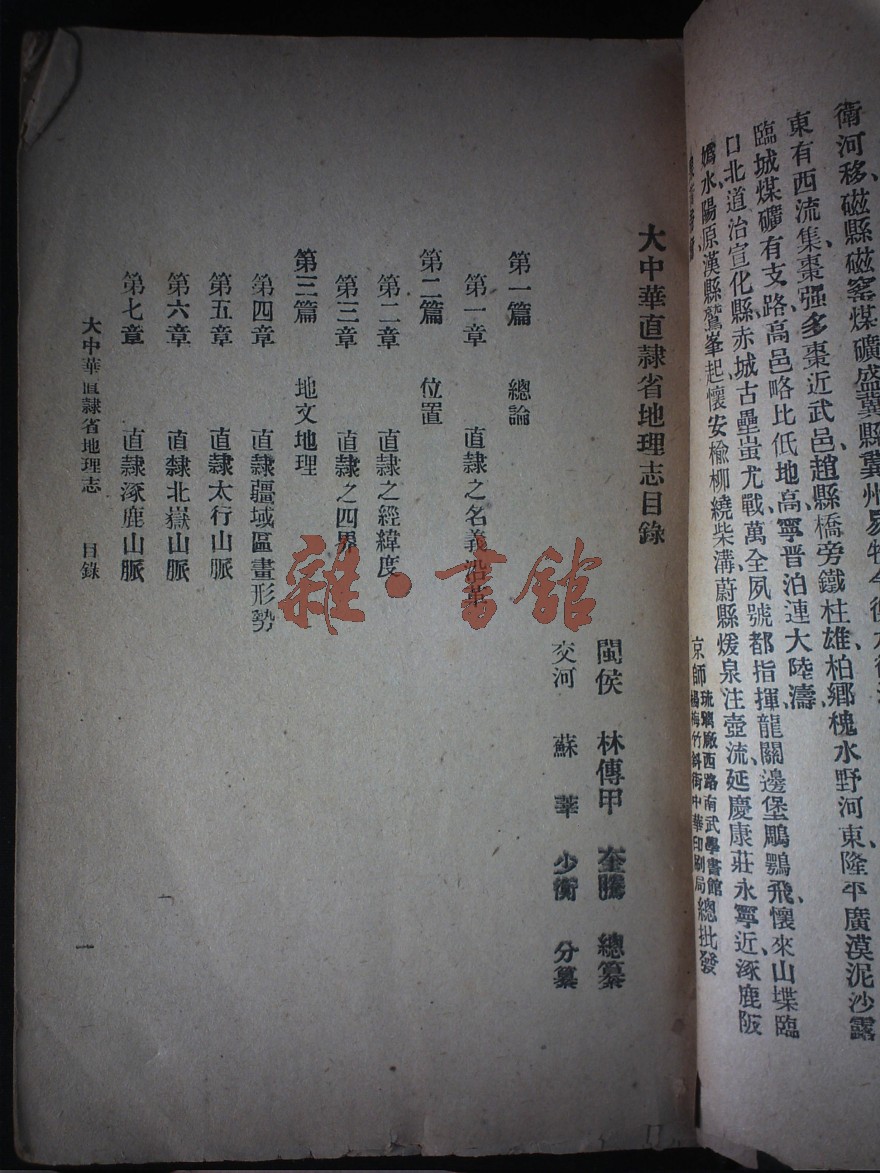 衛河移磁縣磁窰煤礦盛冀縣冀州易
東有西流集棗强多棗近武邑趙縣橋旁鐵柱雄柏鄉槐水野河東隆平廣漠泥沙露
臨城煤礦有支路高邑略比低地高寧晉泊連大陸濤
口北道治宣化縣赤城古壘蚩尤戰萬全夙號都指揮龍關邊堡鵰鶚飛懷來山堞臨
嬀水陽原漢縣鷲峯起懷安榆柳繞柴溝蔚縣煖泉注壺流延慶康莊永寧近涿鹿阪
京師琉璃廠西路南武學書館
楊梅竹斜街中華印刷局總批發
大中華直隸省地理志目錄
閩侯 林傳甲 奎騰 總纂
交河 蘇莘 少衡 分纂
第一篇 總論
第一章 直隸之名義沿革
第二篇 位置
第二章 直隸之經緯度
第三章 直隸之四界
第三篇 地文地理
第四章 直隸疆域區畫形勢
第五章 直隸太行山脈
第六章 直隸北嶽山脈
第七章 直隸涿鹿山脈
大中華直隸省地理志 目錄
一
雜·書館